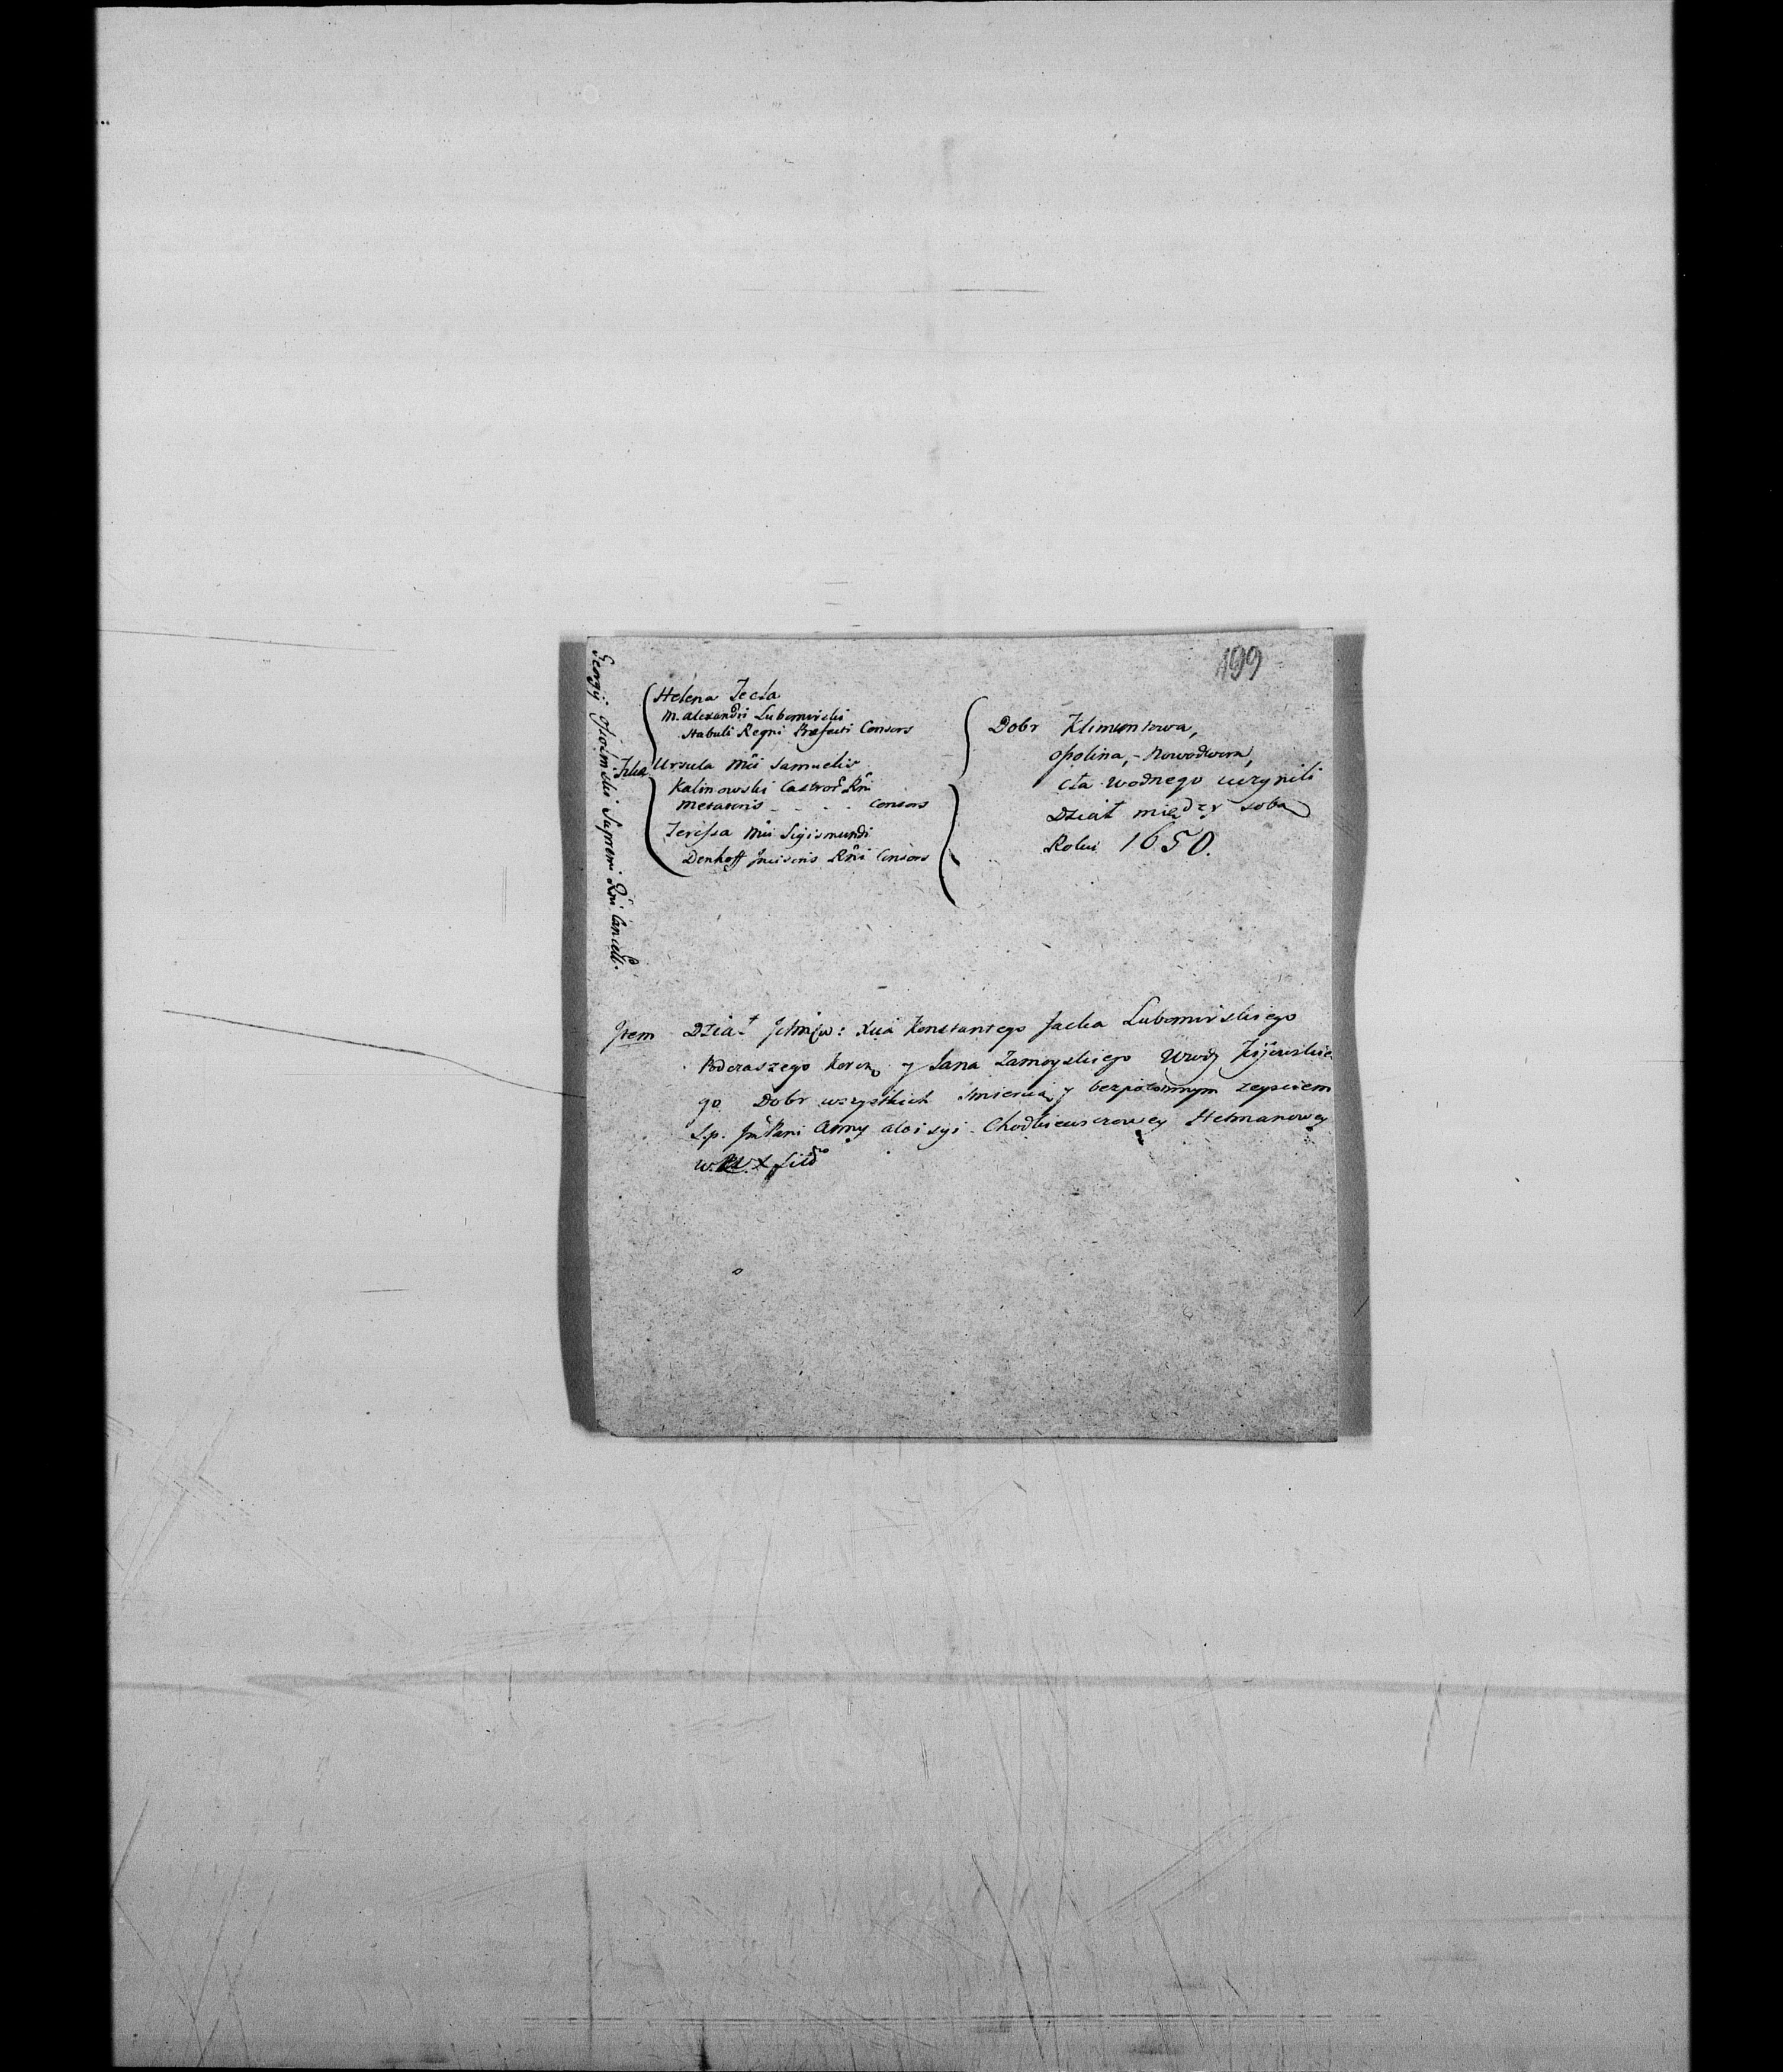 199
Georgij Ossolinski Supremi Rni Cancell.
Helena Tecla
M. Alexandri Lubomirski
Stabuli Regni Præfecti Consors
Ursula Mci Samuelis
Kalinowski Castror Rni
Metatoris - - - - Consors
Teressa Mci Sigismundi
Denhoff Incisoris Rni Consors
Dobr Klimuntowa,
Opolina, - Nowodwora,
Cła Wodnego uczynili
Dział między sobą
Roku 1650.
Item Dział Xcia Konstantego Jacka Lubomirskiego
Podczaszego Korono y Jana Zamoyskiego Wwody Kijowskie
go Dobr wszystkich śmiercią y bezpotomnym zeyściem
S.p. Jm Pani Anny Aloisyi Chodkiewiczowey Hetmanowey